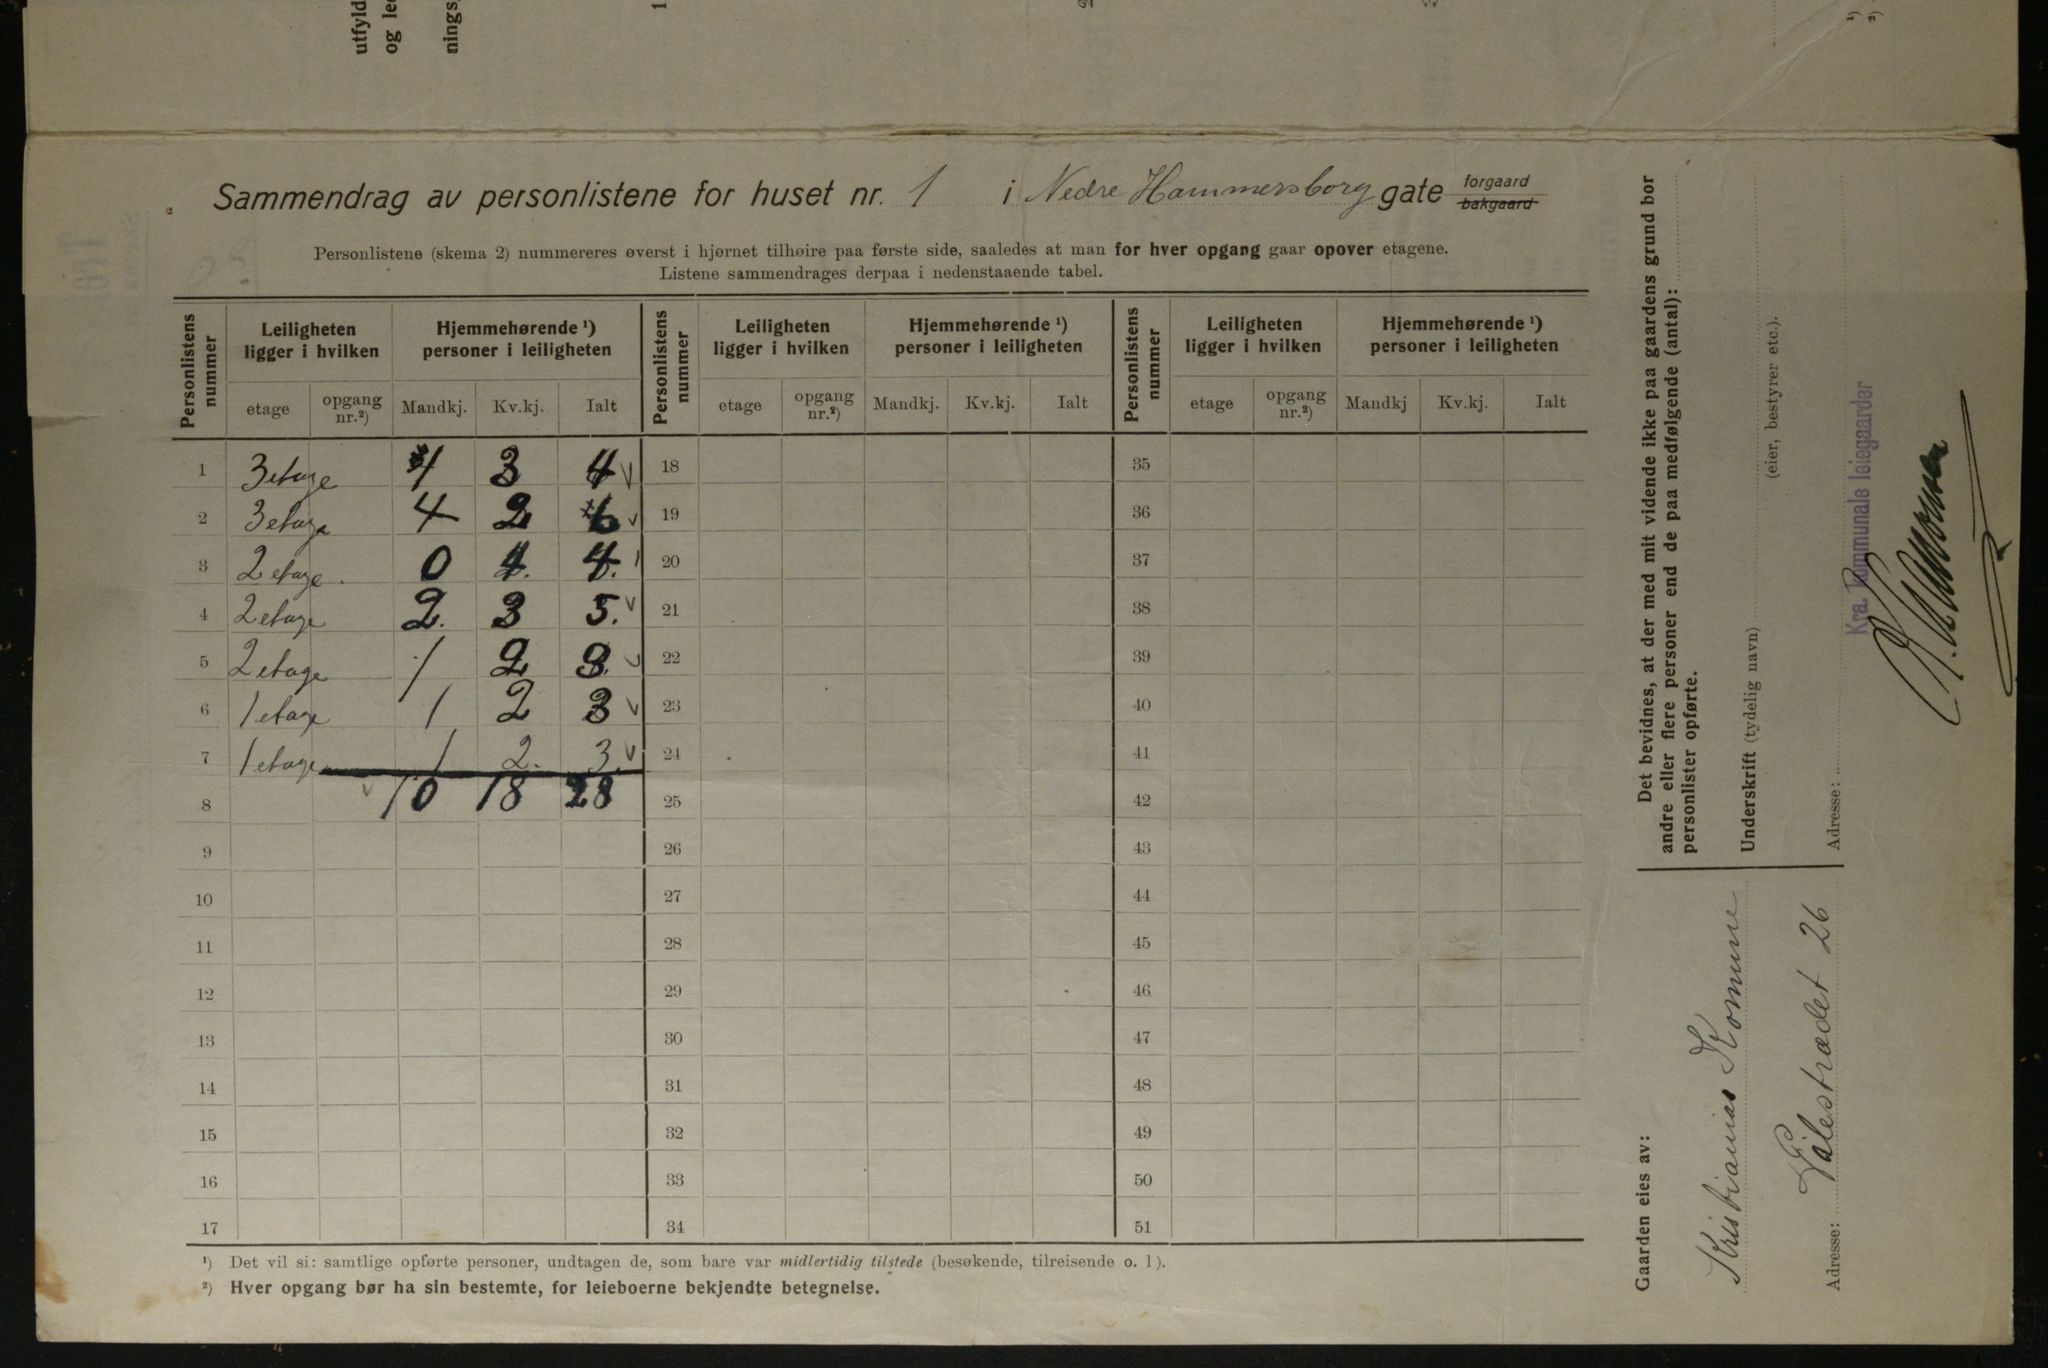 utfyld
og le
nings
1
2
3
¹)
²)
Sammendrag av personlistene for huset nr. 1 i Nedre Hammersborg gate forgaard bakgaard
Personlistene (skema 2) nummereres øverst i hjørnet tilhøire paa første side, saaledes at man for hver opgang gaar opover etagene.
Listene sammendrages derpaa i nedenstaaende tabel.
Personlistens nummer | Leiligheten ligger i hvilken | Hjemmehørende ¹) personer i leiligheten | Personlistens nummer | Leiligheten ligger i hvilken | Hjemmehørende ¹) personer i leiligheten | Personlistens nummer | Leiligheten ligger i hvilken | Hjemmehørende ¹) personer i leiligheten
etage | opgang nr.²) | Mandkj. | Kv.kj. | Ialt | etage | opgang nr.²) | Mandkj. | Kv.kj. | Ialt | etage | opgang nr.²) | Mandkj | Kv.kj. | Ialt
1 3 etage 1 3 4 18 35
2 3 etage 4 2 6 19 36
3 2 etage 0 4. 4. 20 37
4 2 etage 2. 3 5. 21 38
5 2 etage 1 2 3. 22 39
6 1 etage 1 2 3 23 40
7 1 etage 1 2. 3. 24 41
8 10 18 28 25 42
9 26 43
10 27 44
11 28 45
12 29 46
13 30 47
14 31 48
15 32 49
16 33 50
17 34 51
¹) Det vil si: samtlige opførte personer, undtagen de, som bare var midlertidig tilstede (besøkende, tilreisende o. l).
²) Hver opgang bør ha sin bestemte, for leieboerne bekjendte betegnelse.
Det bevidnes, at der med mit vidende ikke paa gaardens grund bor
andre eller flere personer end de paa medfølgende (antal):
personlister opførte.
Underskrift (tydelig navn)
(eier, bestyrer etc.).
Adresse:
Kra. Kommunale leiegaarder
Gaarden eies av:
Kristianias Komune
Adresse: Pilestrædet 26